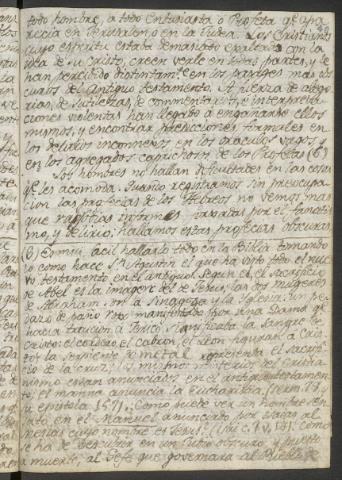 todo hombre, a todo Entusiasta, o Profeta qe apa
recia en Jerusalen o en la Judea. Los Cristianos
cuyo espiritu estaba demasiado exaltado con la
idea de su Cristo, creen verle en todas partes, y le
han percibido distintamte en los parages mas obs
curos del Antiguo Testamento. A fuerza de alego
rias, de sutilezas, de comentarios, e interpreta
ciones violentas han llegado a engañarse ellos
mismos, y encontrar predicciones formales en
los delirios inconnexos en los oraculos vagos y
en los agregados caprichosos de los Profetas (6)
Los hombres no hallan dificultades en las cosas
qe les acomoda. Quando registramos sin preocupa
cion las profecias de los Hebreos no vemos mas
que rapsodias informes por el fanatis
mo, y delirio; hallamos estas profecias obscuras
(6) Es muy facil hallarlo todo en la Biblia tomando
lo como hace Sn Agustin el que ha visto todo el nue
vo testamento en el antiguo. Segun el, el sacrificio
de Abel es la imagen del de Jesus; las dos mugeres
de Abraham son la Sinagoga y la Iglesia; un pe
dazo de paño roxo manifestado por una Dama qe
hacia traicion a Jericó significaba la sangre de
Cristo; el cordero, el cabron, el Leon figuran a Cris
to; la serpiente de metal representa el sacrifi
cio de la cruz; los mismos misterios del Cristia
nismo estan anunciados en el antiguo testamen
to; el manna anuncia la Eucharistia, (
y epistola 157). Como puede ver un hombre sen
sato en el Manuel anunciado por Isaias al
Mesias cuyo nombre es Jesus? (Isai. c. 7, v. 14). Como
se ha de descubrir en un Judio obscuro, y puesto
a muerte, al Gefe que governara al Pueblo de